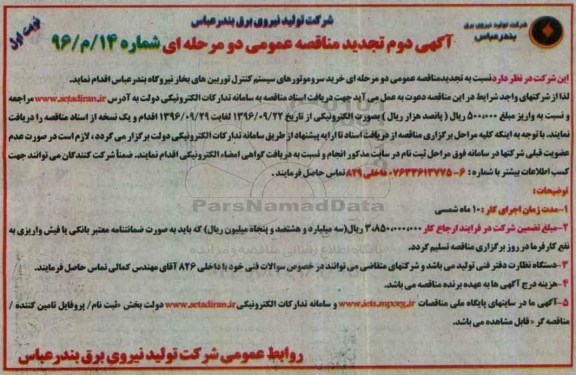 شرکت تولید نیروی برق بندرعباس
شرکت تولید نیروی برق
بندرعباس
نوبت اول
آگهی دوم تجدید مناقصه عمومی دو مرحله ای شماره ۱۴/م/۹۶
این شرکت در نظر دارد نسبت به تجدیدمناقصه عمومی دو مرحله ای خرید سروموتورهای سیستم کنترل توربین های بخار نیروگاه بندرعباس اقدام نماید.
لذا از شرکتهای واجد شرایط در این مناقصه دعوت به عمل می آید جهت دریافت اسناد مناقصه به سامانه تدارکات الکترونیکی دولت به آدرس www.setadiran.ir مراجعه
و نسبت به واریز مبلغ ۵۰۰،۰۰۰ ریال ( پانصد هزار ریال ) بصورت الکترونیکی از تاریخ ۱۳۹۶/۰۹/۲۲ لغایت ۱۳۹۶/۰۹/۲۹ اقدام و یک نسخه از اسناد مناقصه را دریافت
نمایند. با توجه به اینکه کلیه مراحل برگزاری مناقصه از دریافت اسناد تا ارایه پیشنهاد از طریق سامانه تدارکات الکترونیکی دولت برگزار می گردد ، لازم است در صورت عدم
عضویت قبلی شرکتها در سامانه فوق مراحل ثبت نام در سایت مذکور انجام و نسبت به دریافت گواهی امضاء الکترونیکی اقدام نمایند. ضمناً شرکت کنندگان می توانند جهت
کسب اطلاعات بیشتر با شماره : ۶-۰۷۶۳۳۶۱۳۷۷۵ داخلی ۸۲۹ تماس حاصل فرمایند .
توضیحات:
۱-مدت زمان اجرای کار : ۱۰ ماه شمسی
۲-مبلغ تضمین شرکت در فرایند ارجاع کار ۳،۸۵۰،۰۰۰،۰۰۰ ریال(سه میلیارد و هشتصد و پنجاه میلیون ریال) که باید به صورت ضمانتنامه معتبر بانکی یا فیش واریزی به
نفع کارفرما در روز برگزاری مناقصه تسلیم گردد.
۳-دستگاه نظارت دفتر فنی تولید می باشد و شرکتهای متقاضی می توانند در خصوص سوالات فنی خود با داخلی ۸۲۶ آقای مهندس کمالی تماس حاصل فرمایند.
۴-هزینه درج آگهی ها به عهده برنده مناقصه می باشد.
۵-آگهی ما در سایتهای پایگاه ملی مناقصات www.iets.mporg.ir و سامانه تدارکات الکترونیکی www.setadiran.ir دولت بخش «ثبت نام/ پروفایل تامین کننده /
مناقصه گر » قابل مشاهده می باشد.
روابط عمومی شرکت تولید نیروی برق بندرعباس
ParsNamadData